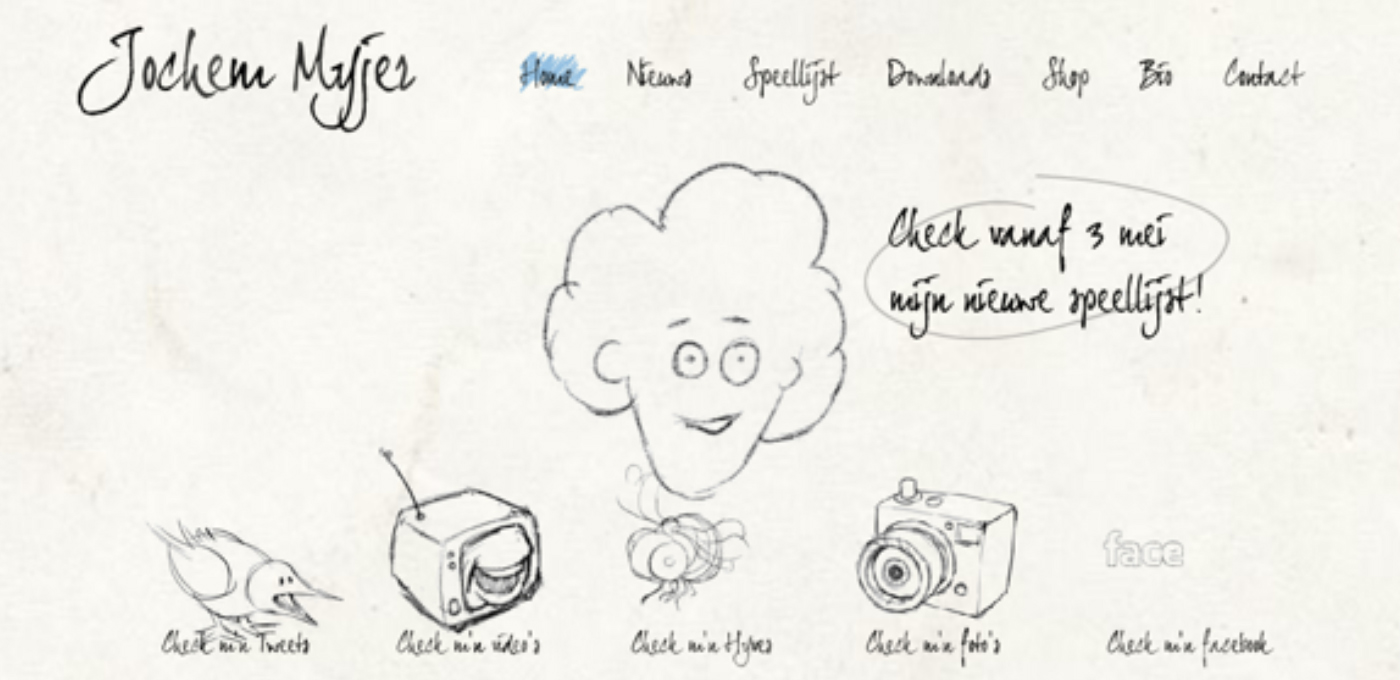 Jochem Myjer
Home Nieuws Speellijst Downloads Shop Bio Contact
Check vanaf 3 mei
mijn nieuwe speellijst!
face
Check m'n Tweets Check m'n video's Check m'n Hyves Check m'n foto's Check m'n facebook